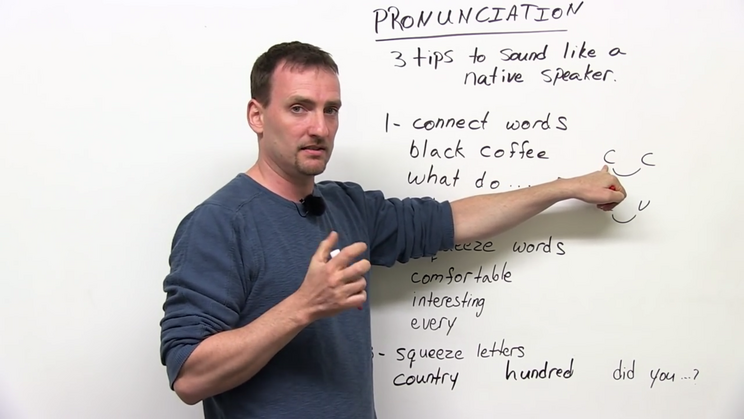 PRONUNCIATION
3 tips to sound like a
native speaker.
1- connect words
black coffee
C C
what do ....
v
squeeze words
comfortable
interesting
every
- squeeze letters
country hundred did you ...?